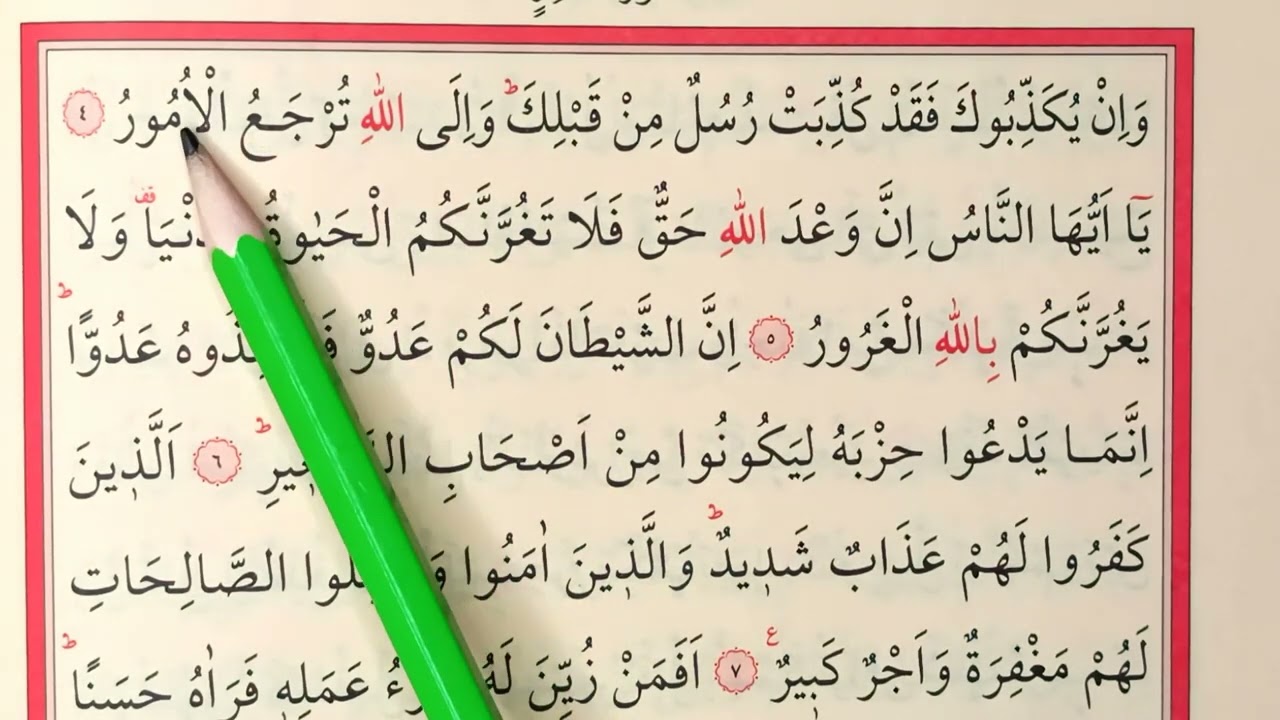 وَاِنْ يُكَذِّبُوكَ فَقَدْ كُذِّبَتْ رُسُلٌ مِنْ قَبْلِكَ ط وَاِلَى اللّٰهِ تُرْجَعُ الْاُمُورُ ٤
يَٓا اَيُّهَا النَّاسُ اِنَّ وَعْدَ اللّٰهِ حَقٌّ فَلَا تَغُرَّنَّكُمُ الْحَيٰوةُ قف وَلَا
يَغُرَّنَّكُمْ بِاللّٰهِ الْغَرُورُ ٥ اِنَّ الشَّيْطَانَ لَكُمْ عَدُوٌّ عَدُوًّا ط
اِنَّمَا يَدْعُوا حِزْبَهُ لِيَكُونُوا مِنْ اَصْحَابِ ط ٦ اَلَّذ۪ينَ
كَفَرُوا لَهُمْ عَذَابٌ شَد۪يدٌ ط وَالَّذ۪ينَ اٰمَنُوا الصَّالِحَاتِ
لَهُمْ مَغْفِرَةٌ وَاَجْرٌ كَب۪يرٌ ع ٧ اَفَمَنْ زُيِّنَ لَهُ عَمَلِه۪ فَرَاٰهُ حَسَنًا ط